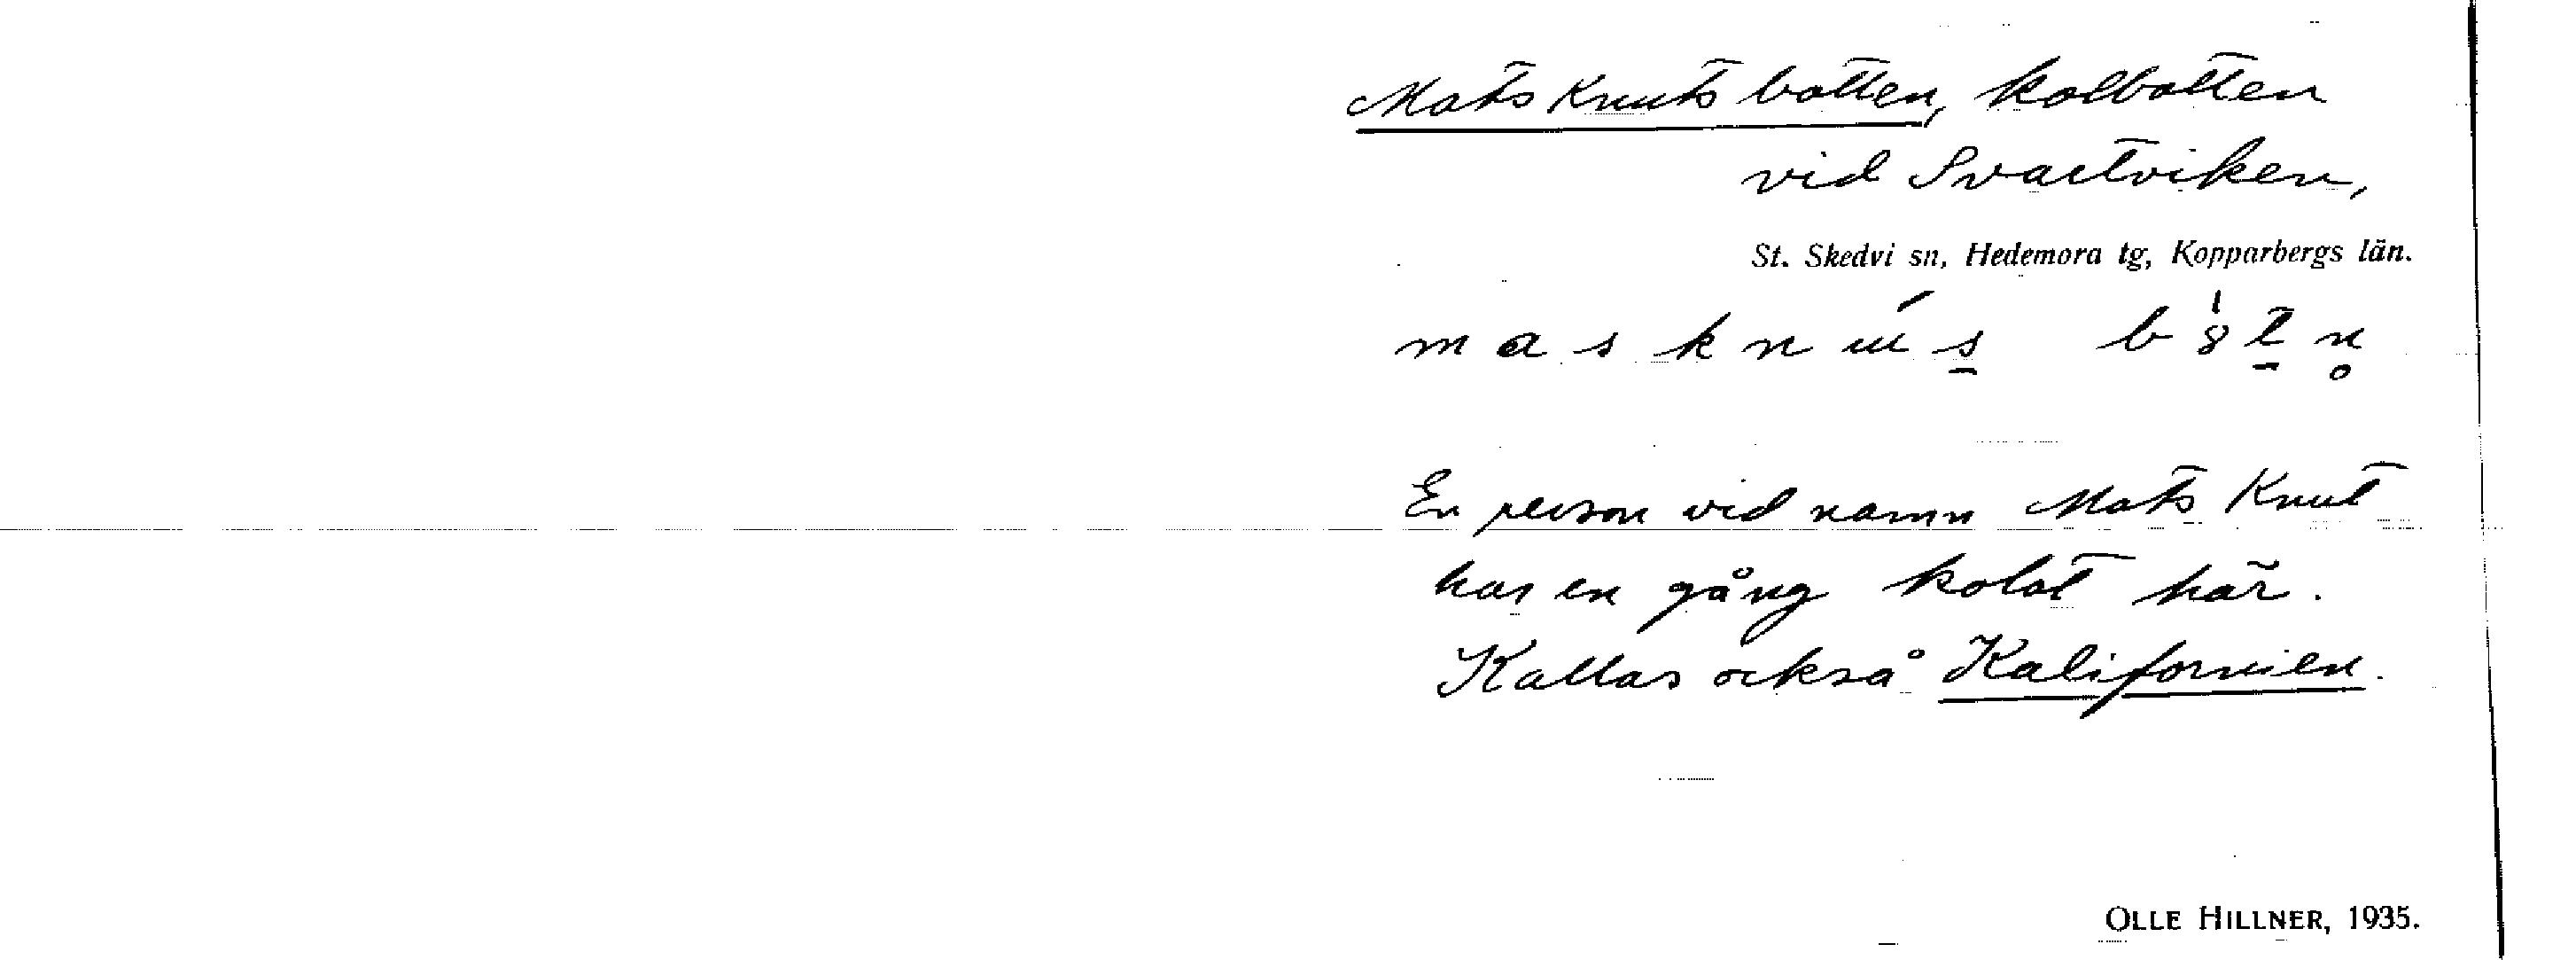 Mats Knuts botten, kolbotten
vid Svartviken,
St. Skedvi sn, Hedemora tg, Kopparbergs län.
En person vid namn Mats Knut
har en gång kolat här.
Kallas också Kalifornien.
OLLE HILLNER, 1935.